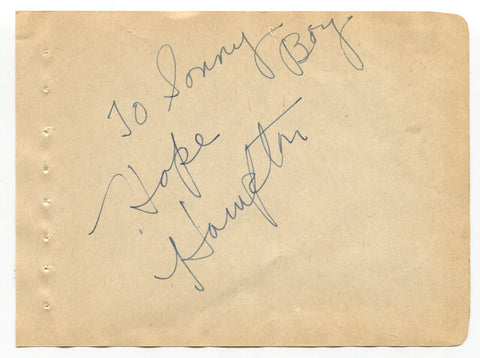 To Sonny Boy
Hope
Hampton